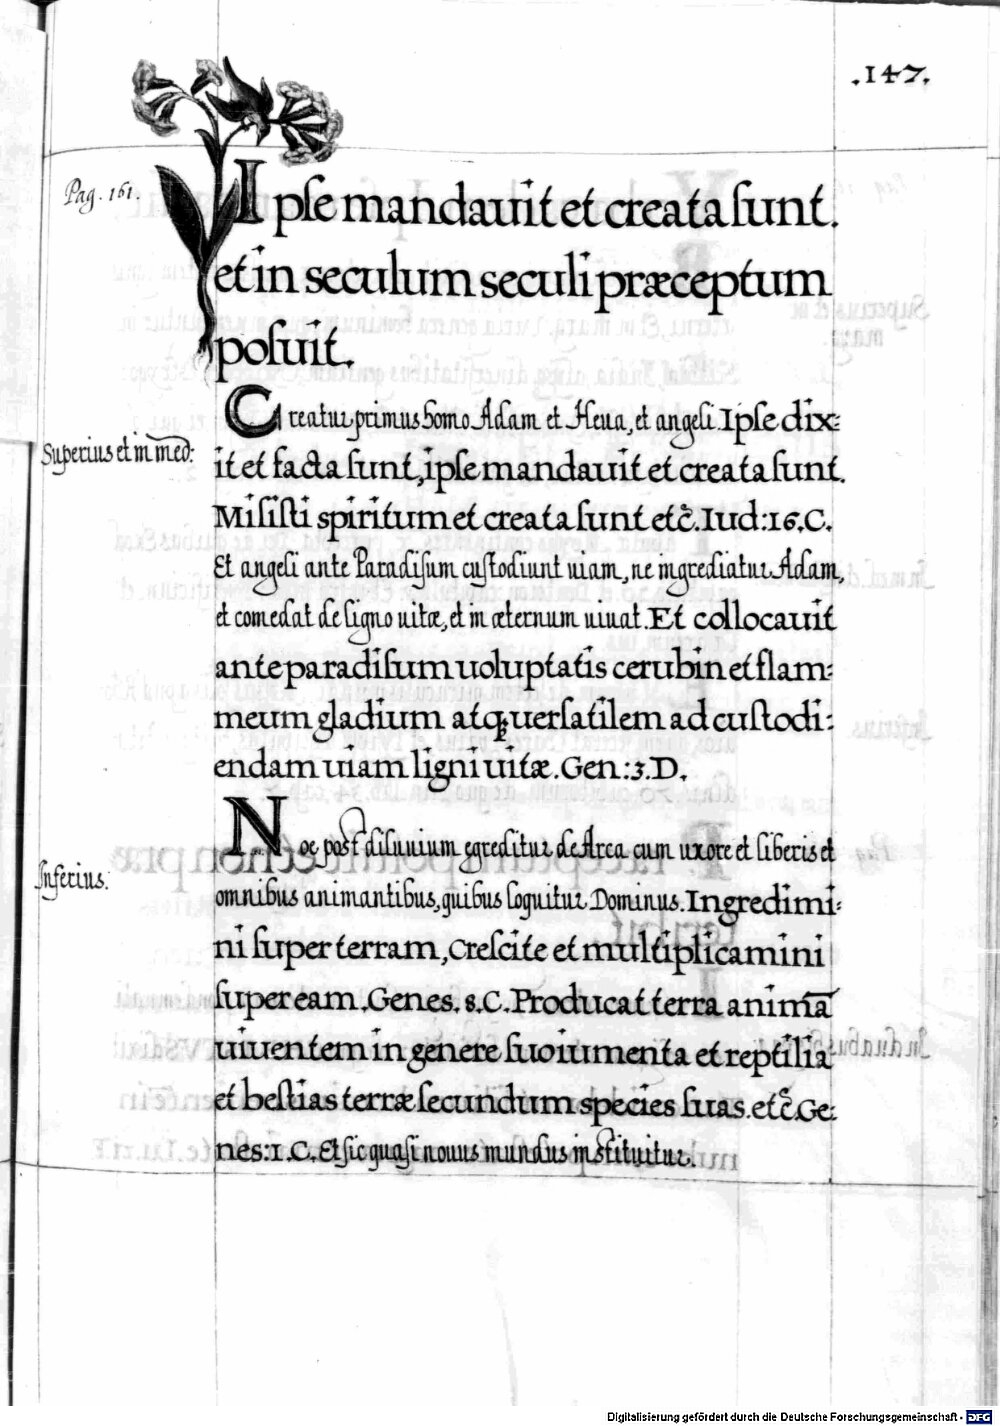 .147.
Pag. 161.
Ipse mandauit et creata sunt.
et in seculum seculi præceptum
posuit.
Superius et in med:
Creatur primus homo Adam et Heua, et angeli. Ipse dix:
it et facta sunt, ipse mandauit et creata sunt.
Misisti spiritum et creata sunt etc̃. Iud: 16. C.
Et angeli ante Paradisum custodiunt uiam, ne ingrediatur Adam,
et comedat de ligno uitæ, et in æternum uiuat. Et collocauit
ante paradisum uoluptatis cerubin et flam:
meum gladium atqꝫ uersatilem ad custodi:
endam uiam ligni uitæ. Gen: 3. D.
Inferius.
Noe post diluuium egreditur de Arca cum uxore et liberis et
omnibus animantibus, quibus loquitur Dominus. Ingredimi:
ni super terram, crescite et multiplicamini
super eam. Genes. 8. C. Producat terra animā
uiuentem in genere suo iumenta et reptilia
et bestias terræ secundum species suas. etc̃. Ge:
nes: 1. C. Et sic quasi nouus mundus instituitur.
Digitalisierung gefördert durch die Deutsche Forschungsgemeinschaft - DFG